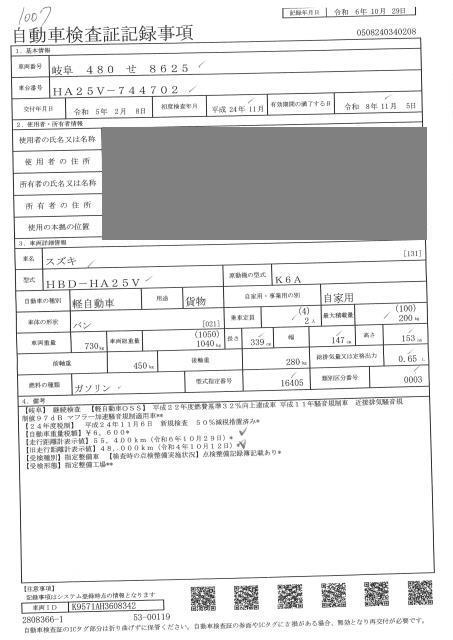 1007
記録年月日 令和 6年10月29日
自動車検査証記録事項
0508240340208
1. 基本情報
車両番号 岐阜 480 せ 8625
車台番号 HA25V-744702
交付年月日 令和 5年 2月 8日 初度検査年月 平成 24年 11月 有効期間の満了する日 令和 8年11月 5日
2. 使用者・所有者情報
使用者の氏名又は名称
使用者の住所
所有者の氏名又は名称
所有者の住所
使用の本拠の位置
3. 車両詳細情報
車名 スズキ [131]
型式 HBD-HA25V 原動機の型式 K6A
自動車の種別 軽自動車 用途 貨物 自家用・事業用の別 自家用
車体の形状 バン [021] 乗車定員 (4) 2人 最大積載量 (100) 200kg
車両重量 730kg 車両総重量 (1050) 1040kg 長さ 339cm 幅 147cm 高さ 153cm
前軸重 450kg 後軸重 280kg 総排気量又は定格出力 0.65L
燃料の種類 ガソリン 型式指定番号 16405 類別区分番号 0003
4. 備考
【岐阜】 継続検査 【軽自動車OSS】 平成22年度燃費基準32%向上達成車 平成11年騒音規制車 近接排気騒音規
制値97dB マフラー加速騒音規制適用車**
【24年度税制】 平成24年11月6日 新規検査 50%減税措置済み*
【自動車重量税額】¥6,600*
【走行距離計表示値】55,400km（令和6年10月29日）*
【旧走行距離計表示値】48,000km（令和4年10月12日）*
【受検種別】指定整備車 【検査時の点検整備実施状況】点検整備記録簿記載あり*
【受検形態】指定整備工場**
【注意事項】
記録事項はシステム登録時点の情報となります
車両ID K9571AH3608342
2808366-1 53-00119
自動車検査証のICタグ部分は折り曲げずに保管ください。自動車検査証の券面やICタグに き損がある場合、無効となり再交付が必要です。